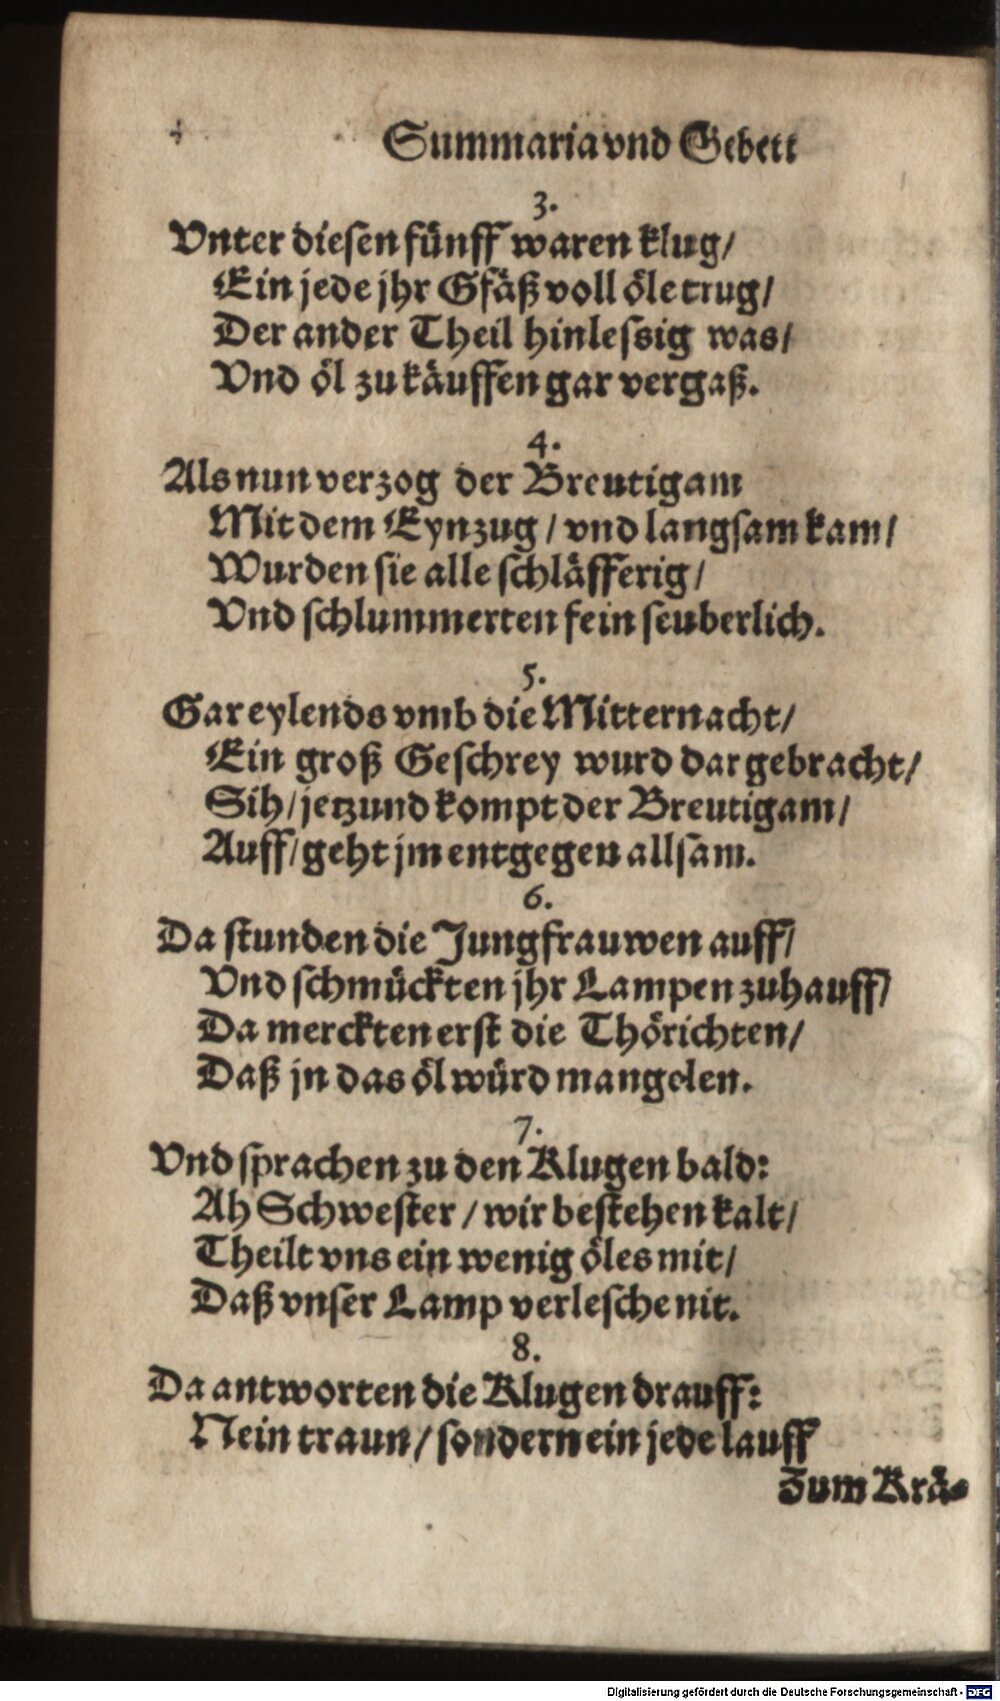 4 Summaria vnd Gebett
3.
Vnter diesen fünff waren klug/
Ein jede jhr Gfäß voll öle trug/
Der ander Theil hinlessig was/
Vnd öl zu käuffen gar vergaß.
4.
Als nun verzog der Breutigam
Mit dem Eynzug / vnd langsam kam/
Wurden sie alle schläfferig/
Vnd schlummerten fein seuberlich.
5.
Gar eylends vmb die Mitternacht/
Ein groß Geschrey wurd dar gebracht/
Sih/ jetzund kompt der Breutigam/
Auff/ geht jm entgegen allsam.
6.
Da stunden die Jungfrauwen auff/
Vnd schmückten jhr Lampen zuhauff/
Da merckten erst die Thörichten/
Daß jn das öl würd mangelen.
7.
Vnd sprachen zu den Klugen bald:
Ah Schwester / wir bestehen kalt/
Theilt vns ein wenig öles mit/
Daß vnser Lamp verlesche nit.
8.
Da antworten die Klugen drauff:
Nein traun / sondern ein jede lauff
Zum Krä-
Digitalisierung gefördert durch die Deutsche Forschungsgemeinschaft - DFG